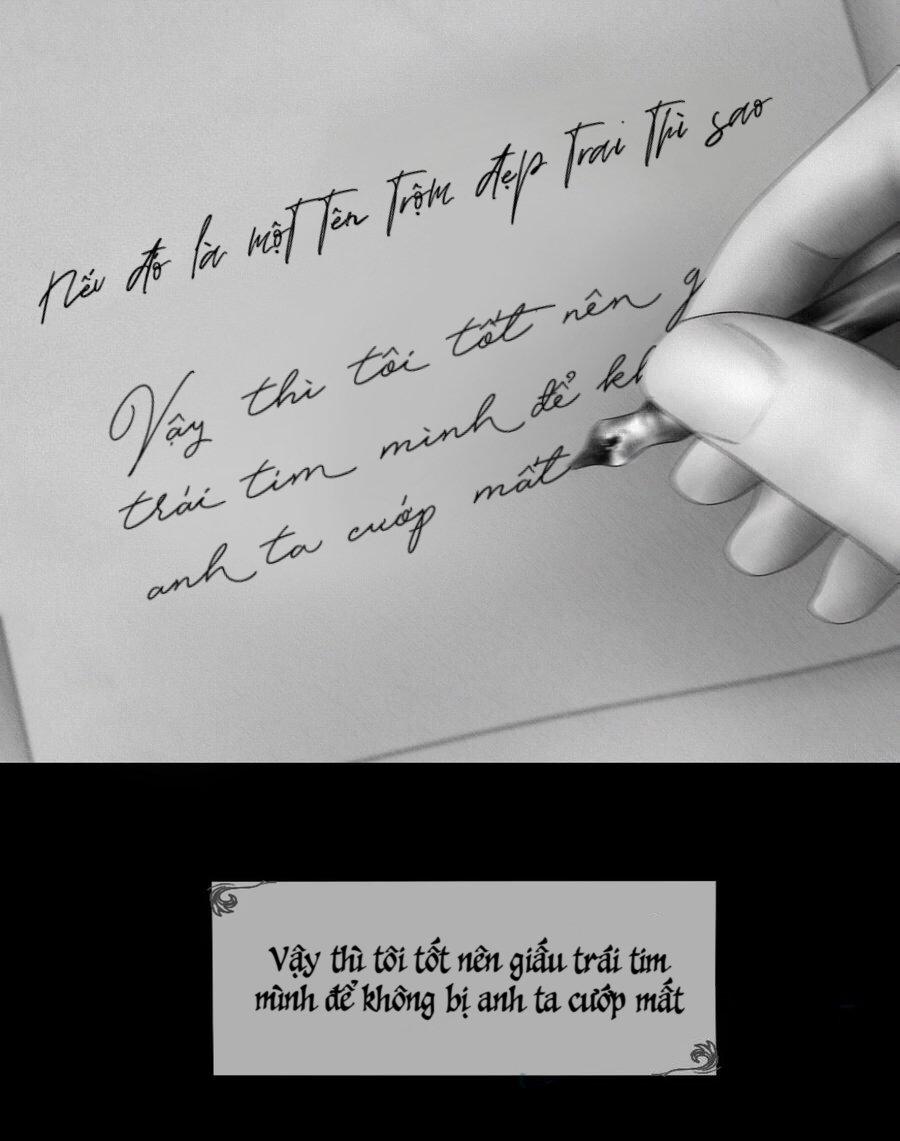 Nếu đó là một tên trộm đẹp trai thì sao
Vậy thì tôi tốt nên
trái tim mình để
anh ta cướp mất
Vậy thì tôi tốt nên giấu trái tim
mình để không bị anh ta cướp mất